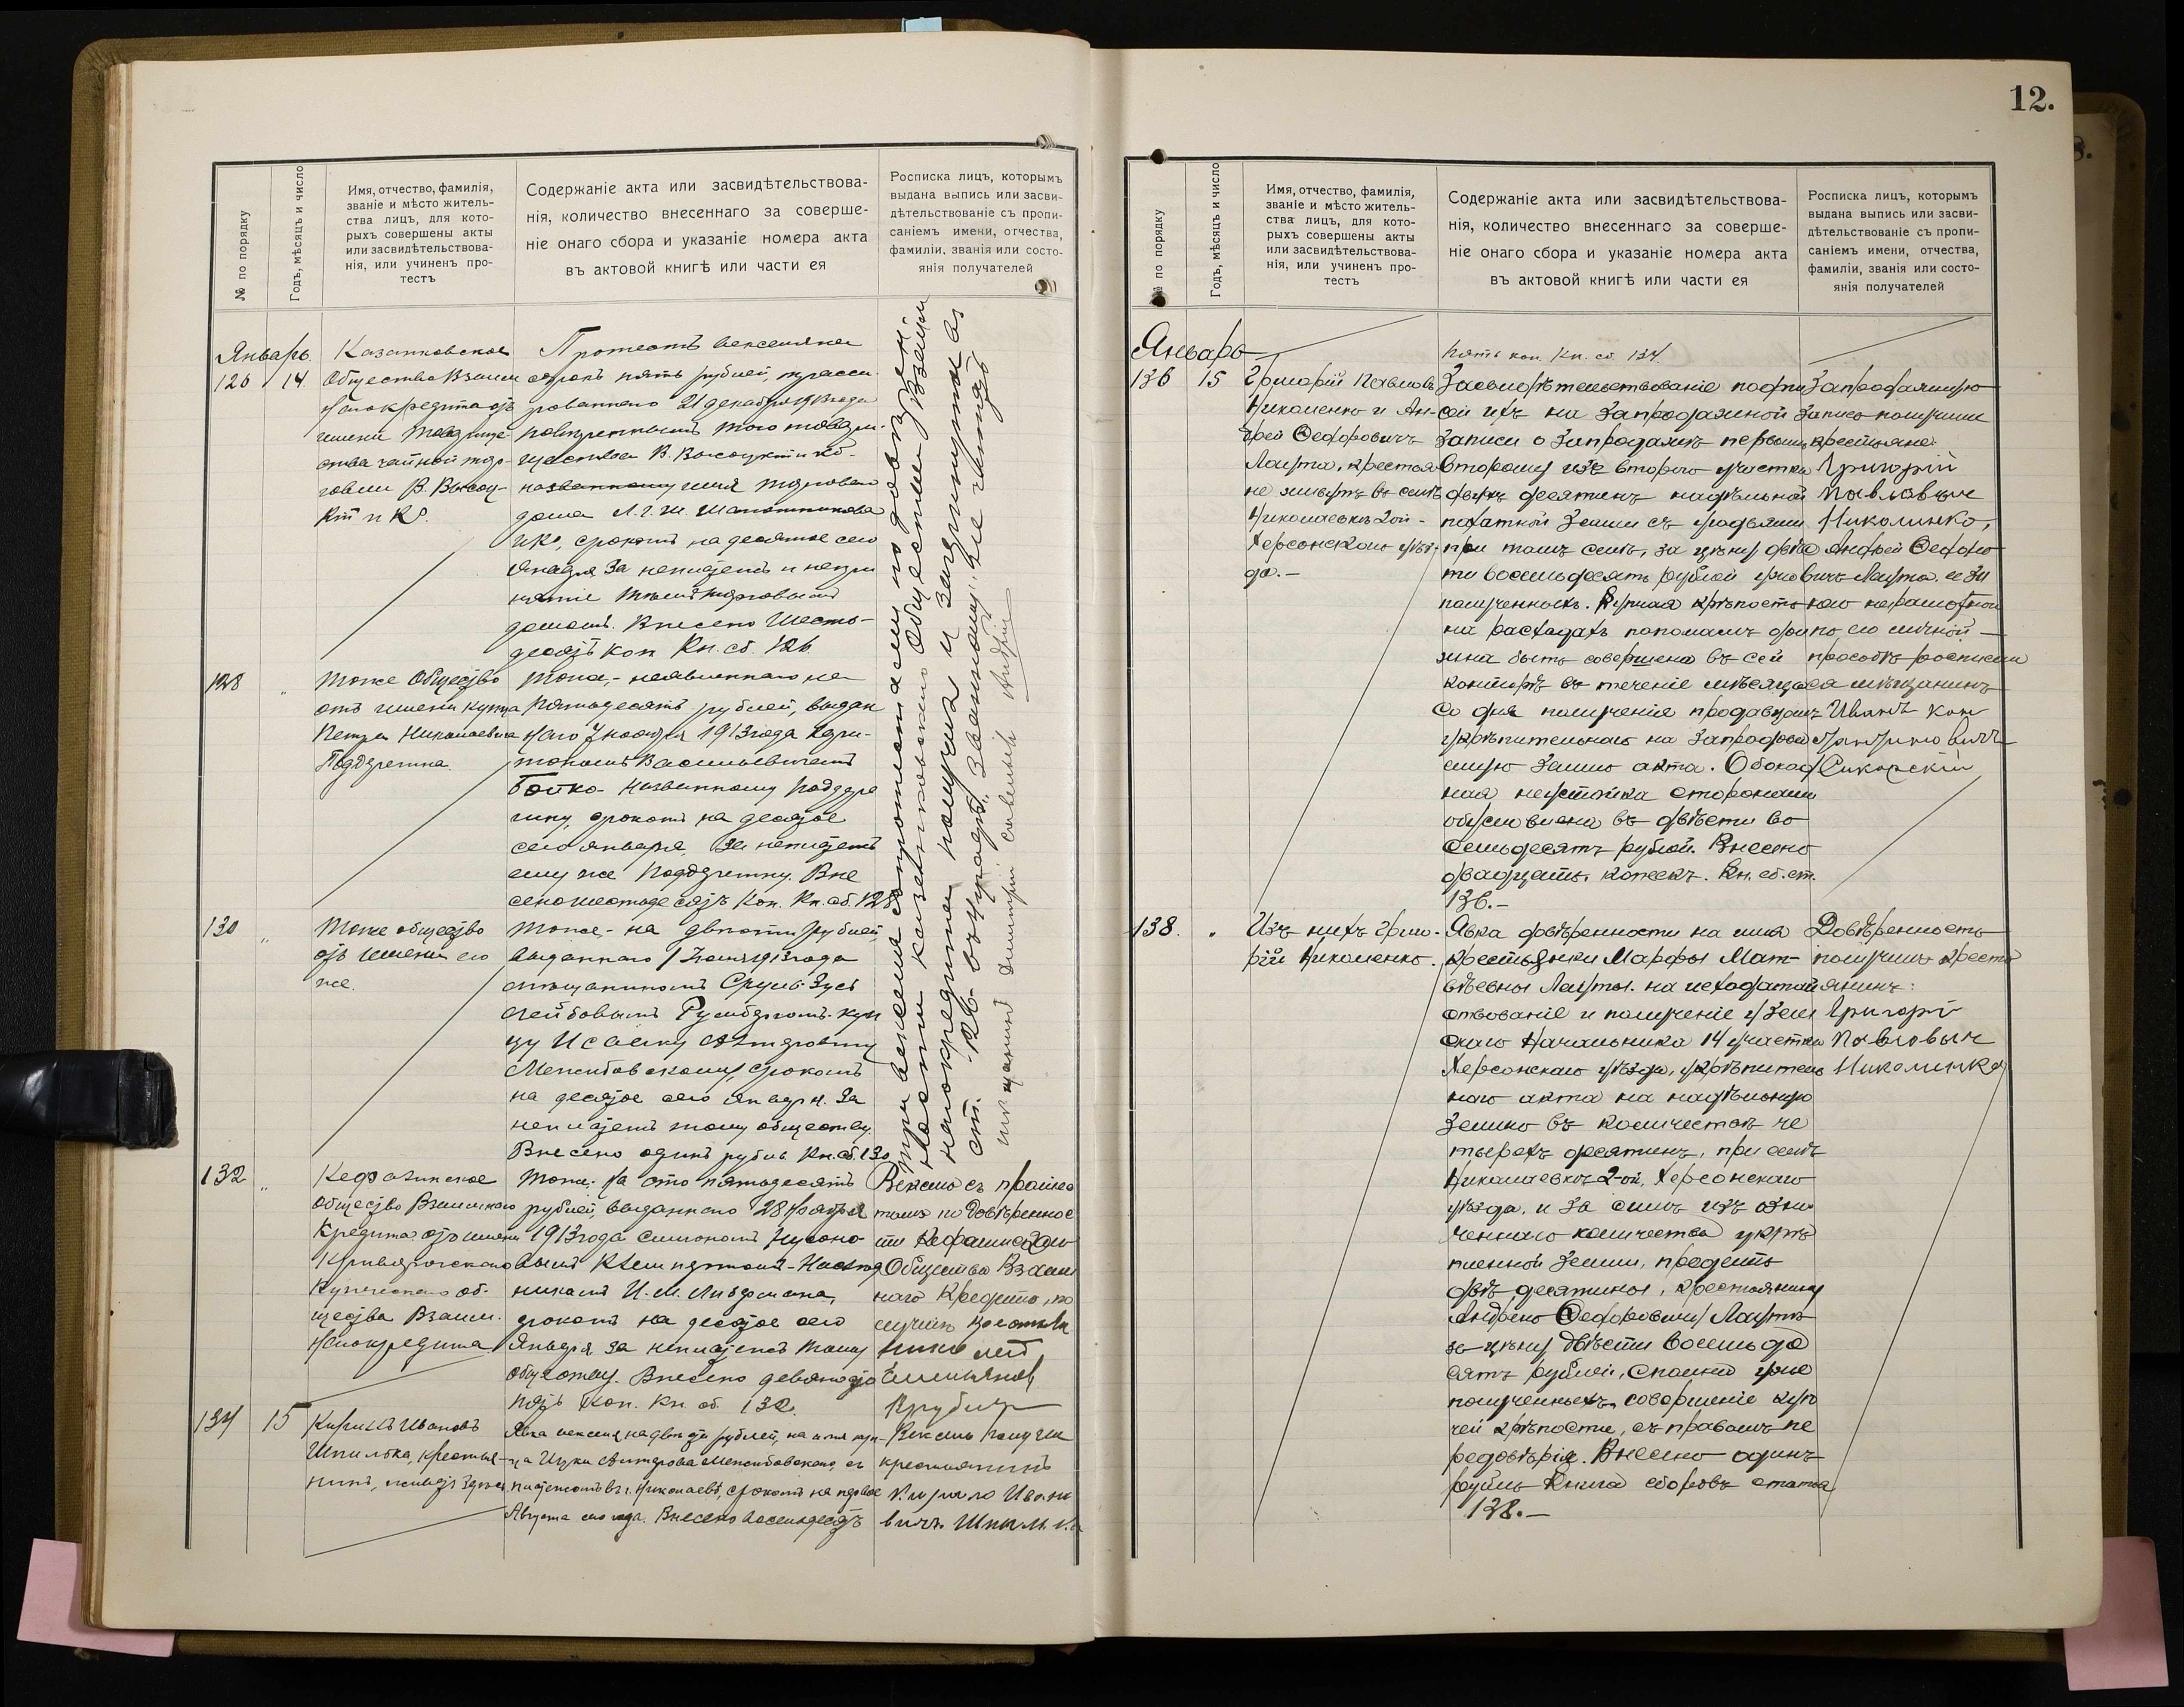 12.
№ по порядку
Годъ, мѣсяцъ и число
Имя, отчество, фамилія,
званіе и мѣсто житель-
ства лицъ, для кото-
рыхъ совершены акты
или засвидѣтельствова-
нія, или учиненъ про-
тестъ
Содержаніе акта или засвидѣтельствова-
нія, количество внесеннаго за соверше-
ніе онаго сбора и указаніе номера акта
въ актовой книгѣ или части ея
Росписка лицъ, которымъ
выдана выпись или засви-
дѣтельствованіе съ пропи-
саніемъ имени, отчества,
фамиліи, званія или состо-
янія получателей
Январь
126
14.
Казанковское
Общество Взаим
наго кредита отъ
имени Товарище
ства чайной тор-
говли В. Высоц-
кій и Ко.
Протестъ векселя на
сорокъ пять рублей, трасси-
рованнаго 21 декабря 1913 года
повѣреннымъ того товари-
щества В. Высоцкій и Ко-
на имя торговаго
дома
и Ко, срокомъ на десятое сего
Января за неплатежъ и непри
нятіе тѣмъ торговымъ
домомъ. Внесено шесть-
десятъ коп Кн. сб. 126.
128
"
Тоже Общество
отъ имени купца
Петра Николаевича
Тоже, - неявленнаго на
Пятьдесятъ рублей, выдан
наго 7 ноября 1913 года Хари-
тономъ Васильевичемъ
Бойко названному
срокомъ на десятое
сего января, за неплатежъ
ему же. Вне
сено шестьдесятъ Коп. Кн. сб. 128.
130
"
Тоже общество
отъ имени его
же.
Тоже, - на двѣсти рублей,
выданнаго 1913 года
мѣщаниномъ Сруль-Зусь
Лейбовымъ куп
цу
Меншбовскому, срокомъ
на десятое сего января. За
неплатежъ тому обществу
Внесено одинъ рубль Кн. сб. 130.
три векселя съ протестами по довѣрен-
ности Казанковскаго Общества Взаим
наго кредита получилъ и зачеркнутое въ
ст. 126- въ 4 графѣ "званному" не читать
мѣщанинъ Димитрій
132
"
Общество Взаимнаго
Кредита отъ имени
Криворогскаго
Купеческаго об-
щества Взаим-
наго кредита
Тоже, на сто пятьдесятъ
рублей, выданнаго 28 Ноября
1913 года Симономъ
вымъ
срокомъ на десятое сего
Января за неплатежъ тому
обществу. Внесено девяносто
пять Коп. Кн. сб. 132.
Вексель съ протес
томъ по довѣреннос
ти
Общества Взаим
наго Кредита, по
лучилъ крестья
нинъ
Емельянов
134
15
Кириллъ Ивановъ
Шпилька, крестья-
нинъ, живетъ здѣсь
Явка векселя на двѣсти рублей, на имя куп-
ца Меншбовскаго, съ
платежомъ въ г. Николаевѣ, срокомъ на первое
Августа сего года. Внесено восемьдесятъ
Вексель получилъ
крестьянинъ
Кирило Ивано
вичъ Шпилька
№ по порядку
Годъ, мѣсяцъ и число
Имя, отчество, фамилія,
званіе и мѣсто житель-
ства лицъ, для кото-
рыхъ совершены акты
или засвидѣтельствова-
нія, или учиненъ про-
тестъ
Содержаніе акта или засвидѣтельствова-
нія, количество внесеннаго за соверше-
ніе онаго сбора и указаніе номера акта
въ актовой книгѣ или части ея
Росписка лицъ, которымъ
выдана выпись или засви-
дѣтельствованіе съ пропи-
саніемъ имени, отчества,
фамиліи, званія или состо-
янія получателей
Январь
пять коп. Кн. сб. 134.
136
15
Григорій Павловъ
Николенко и Ан-
дрей Ѳедоровичъ
Лаута, крестья
не живутъ въ селѣ
Николаевкѣ 2ой -
Херсонскаго уѣз-
да. -
Засвидѣтельствованіе подпи
сей ихъ на запродажной
записи о запродажѣ первымъ
второму изъ второго участка
двухъ десятинъ надѣльной
пахатной земли съ угодьями
при томъ селѣ, за цѣну двѣс
ти восемьдесятъ рублей уже
полученныхъ. Купчая крѣпость
на расходахъ пополамъ дол
жна быть совершена въ сей
конторѣ въ теченіе мѣсяца
со дня полученія продавцомъ
укрѣпительнаго на запродан
ную землю акта. Обоюд
ная неустойка сторонами
обусловлена въ двѣсти во
семьдесятъ рублей. Внесено
двадцать копѣекъ. Кн. сб. ст.
136. -
Запродажную
запись получили
крестьяне:
Григорій
Павловыч
Николинко,
Андрей Ѳедоро
вичъ Лаута. а за
него неграмотна
го, по его личной -
просьбѣ росписал
ся мѣщанинъ
Иванъ Кон
стантиновичъ
Сикорскій
138.
"
Изъ нихъ Григо-
рій Николенко.
Явка довѣренности на имя
крестьянки Марфы Мат-
вѣевны Лауты. на ходатай
ствованіе и полученіе у Зем
скаго Начальника 14 участка
Херсонскаго уѣзда, укрѣпитель
наго акта на надѣльную
землю въ количествѣ че
тырехъ десятинъ, при селѣ
Николаевкѣ 2-ой, Херсонскаго
уѣзда, и за симъ изъ озна
ченнаго количества укрѣп
ленной земли, продать
двѣ десятины, крестьянину
Андрею Ѳедоровичу Лаутѣ
за цѣну двѣсти восемьде
сятъ рублей, сполна уже
полученныхъ, совершеніе куп
чей крѣпости, съ правомъ пе
редовѣрія. Внесено одинъ
рубль Книга сборовъ статья
138. -
Довѣренность
получилъ кресть
янинъ:
Григорій
Павловыч
Николинко